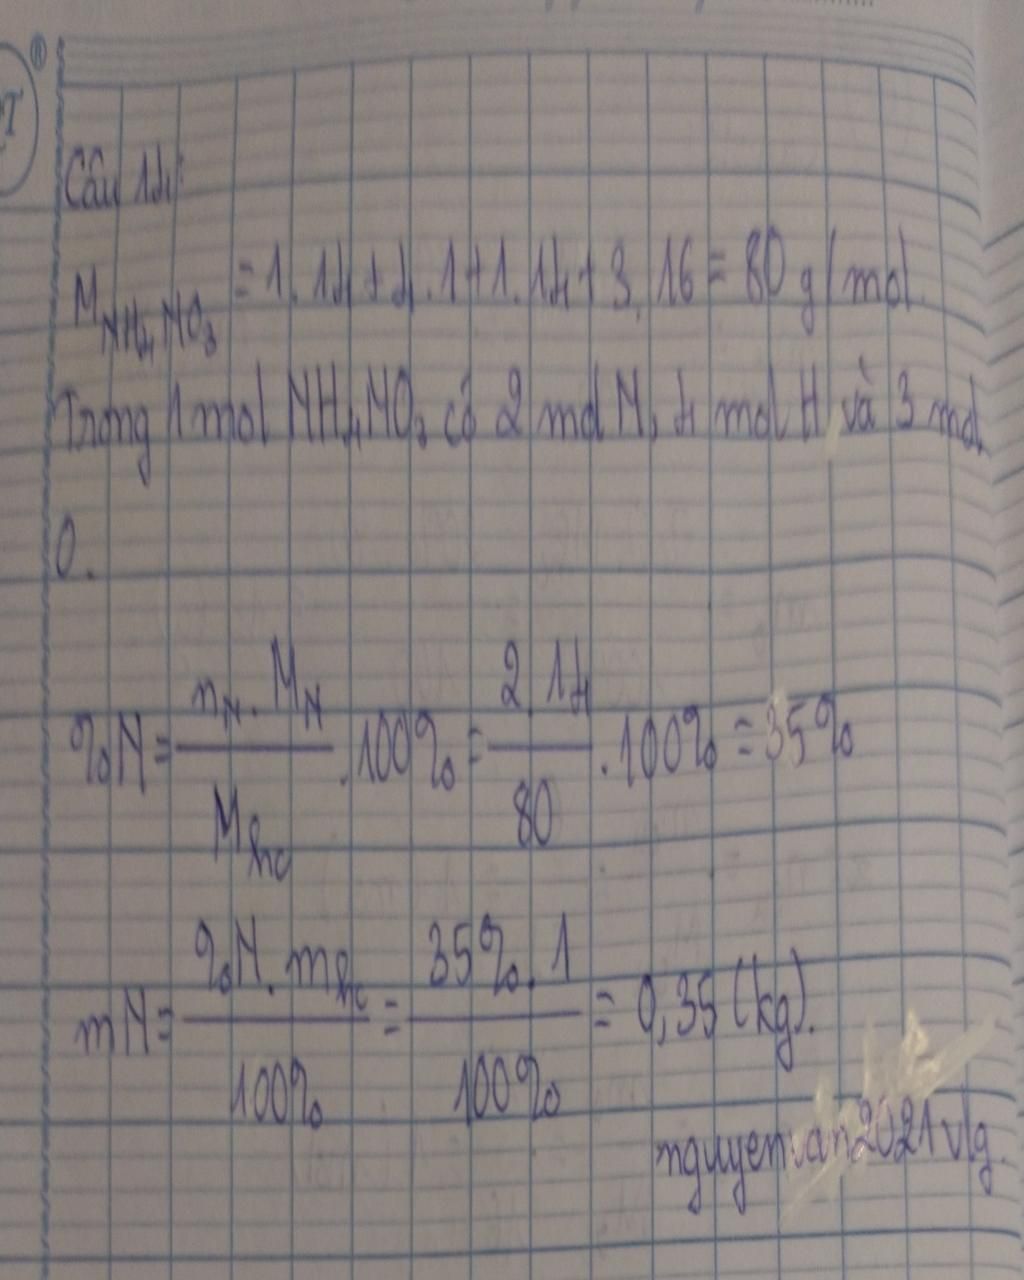 Câu 14:
M_NH₄NO₃ = 1.14 + 4.1 + 1.14 + 3.16 = 80 g/mol.
Trong 1 mol NH₄NO₃ có 2 mol N, 4 mol H và 3 mol
O.
%N = (n_N . M_N)/M_hc . 100% = (2.14)/80 . 100% = 35%
mN = (%N. m_hc)/100% = (35%. 1)/100% = 0,35 (kg).
nguyenvan2021vlg.